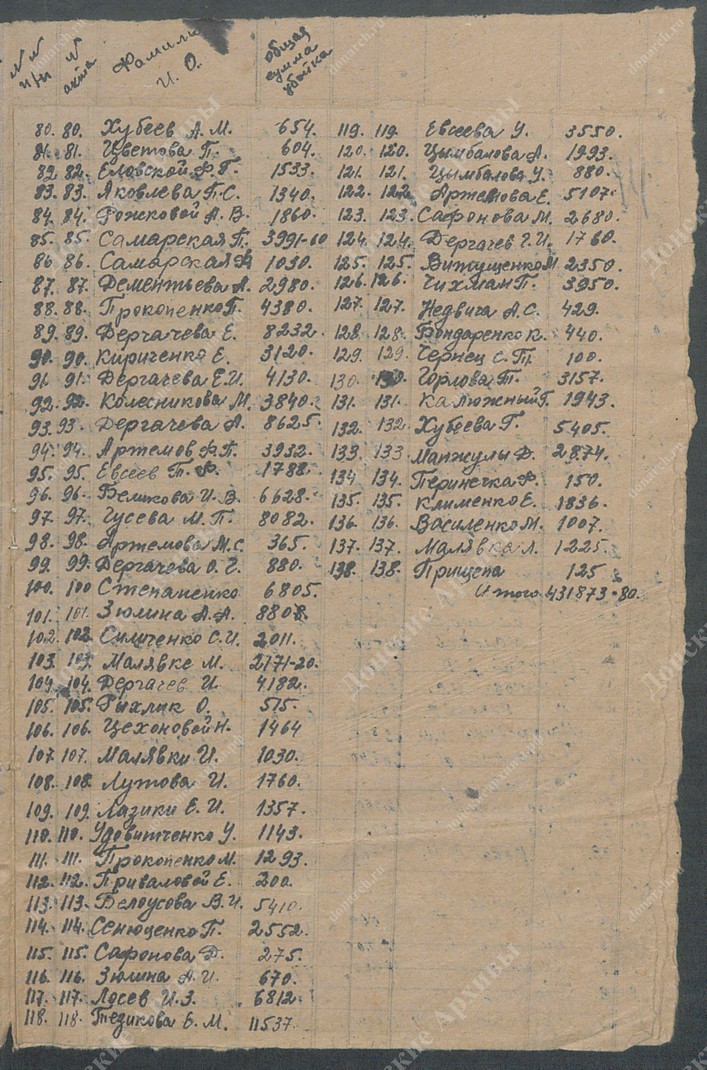 №№ п/п № акта Фамилия И. О. общая сумма убытка
80. 80. Хубеев А. М. 654.
81. 81. Цветова П. 604.
82 82. Еловской Ф. Г. 1533.
83. 83. Яковлева П. С. 1340.
84. 84. Рожковой А. В. 1860.
85. 85. Самарская П. 3991-60
86 86. Самарская 1030.
87. 87. Дементьева А. 2980.
88. 88. Прокопенко П. 4380.
89. 89. Дергачева Е. 8232.
90. 90. Кириченко Е. 3120.
91. 91. Дергачева Е. И. 4130.
92. 92. Колесникова М. 3840.
93. 93. Дергачева А. 8625.
94. 94. Артемов Ф. П. 3932.
95. 95. Евсеев Т. Ф. 1788.
96. 96. Великова И. В. 6628.
97. 97. Гусева М. П. 8082.
98. 98. Артемова М. С. 365.
99. 99. Дергачева О. Г. 880.
100. 100 Степаненко 6805.
101. 101. Зюлина А. А. 8808.
102. 102. Силиченко С. И. 2011.
103. 103. Малявке М. 2171-20.
104. 104. Дергачев И. 4182.
105. 105. Рыхлик О. 515.
106. 106. Цехоновой Н. 1464
107. 107. Малявки И. 1030.
108. 108. Лутова И. 1760.
109. 109. Лазики Е. И. 1357.
110. 110. Удовитченко У. 1143.
111. 111. Прокопенко М. 1293.
112. 112. Приваловой Е. 200.
113. 113. Белоусова В. И. 5410.
114. 114. Сенюценко П. 2552.
115. 115. Сафонова Д. 275.
116. 116. Зюлина А. И. 670.
117. 117. Лосев И. З. 6812.
118. 118. Тедикова Е. М. 11537.
119. 119. Евсеева У. 3550.
120. 120. Цымбалова А. 1993.
121. 121. Цымбалова У. 880.
122. 122 Артемова Е. 5107.
123. 123. Сафонова М. 2680.
124. 124. Дергачев Г. И. 1760.
125. 125. Витущенко М 2350.
126. 126. Чихман П. 3950.
127. 127. Недвига А. С. 429.
128. 128. Бондаренко К. 440.
129. 129. Чернец С. П. 100.
130. 130. Горлова Т. 3157.
131. 131. Калюжный Г. 1943.
132. 132. Хубеева Г. 5405.
133. 133 Мапжулы Д. 2874.
134 134. Перинечка Ф. 150.
135. 135. Клименко Е. 1836.
136. 136. Василенко М. 1007.
137. 137. Малявка Л. 1225.
138. 138. Прищепа 125
Итого 431873-80.